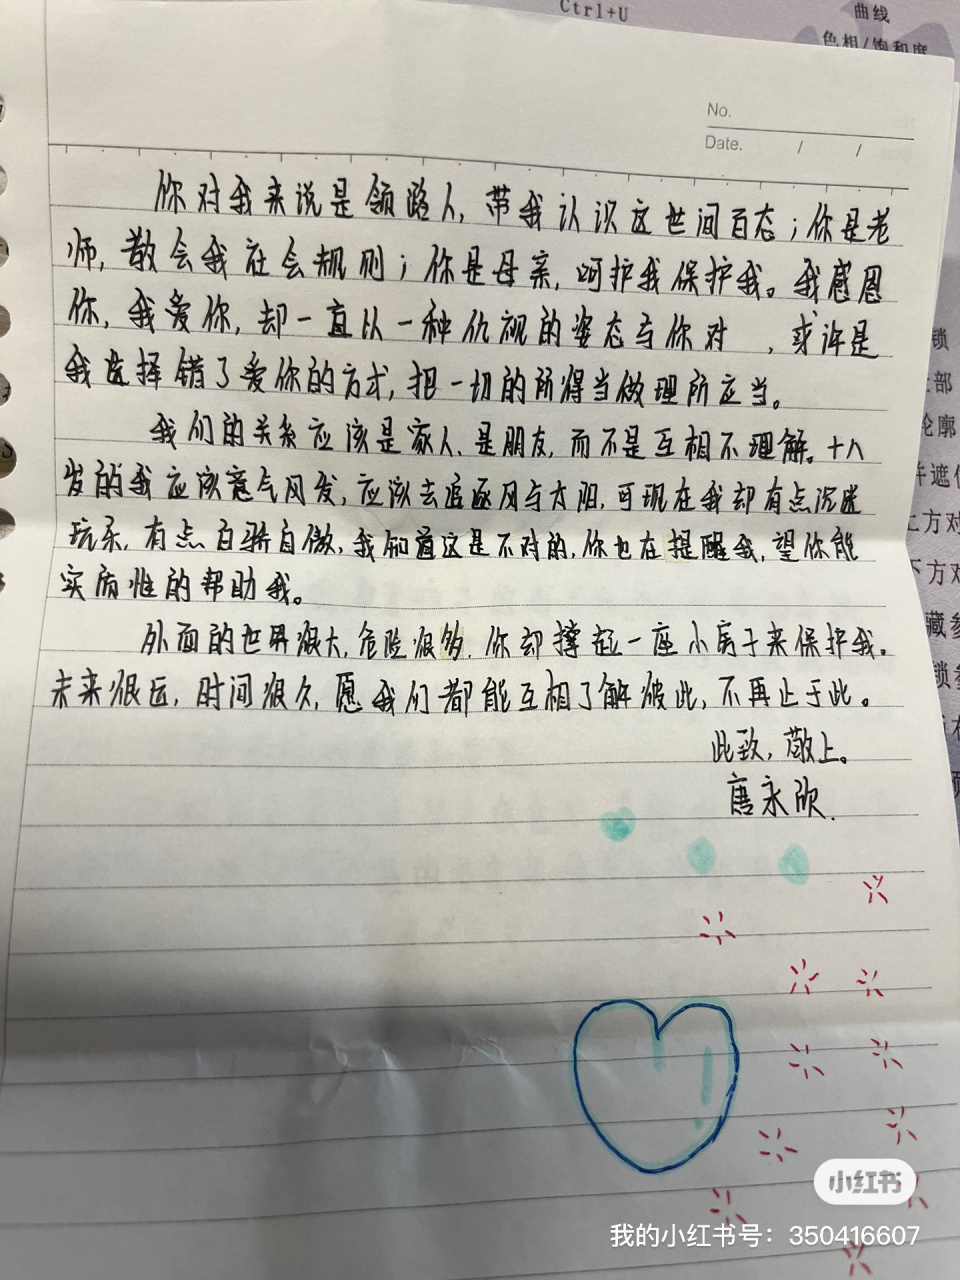 Ctrl+U
曲线
色相/饱和度
No.
Date. / /
你对我来说是领路人, 带我认识这世间百态；你是老
师, 教会我社会规则；你是母亲, 呵护我保护我。我感恩
你, 我爱你, 却一直以一种仇视的姿态与你对 , 或许是
我选择错了爱你的方式, 把一切的所得当做理所应当。
我们的关系应该是家人, 是朋友, 而不是互相不理解。十八
岁的我应该意气风发, 应该去追逐风与太阳, 可现在我却有点沉迷
玩乐, 有点自骄自傲, 我知道这是不对的, 你也在提醒我, 望你能
实质性的帮助我。
外面的世界很大, 危险很多, 你却撑起一座小房子来保护我。
未来很远, 时间很久, 愿我们都能互相了解彼此, 不再止于此。
此致, 敬上。
唐永欣.
锁
部
轮廓
并遮
上方对
下方对
藏参
锁参
小红书
我的小红书号：350416607